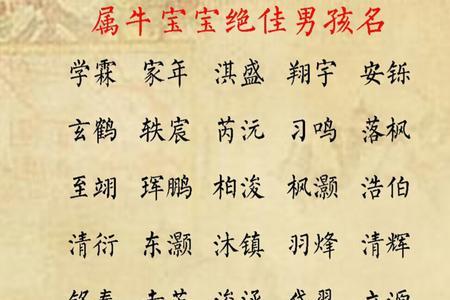 属牛宝宝绝佳男孩名
学霖 家年 淇盛 翔宇 安铄
玄鹤 轶宸 芮沅 习鸣 落枫
至翊 珲鹏 柏浚 枫灏 浩伯
清衍 东灏 沐镇 羽烽 清辉